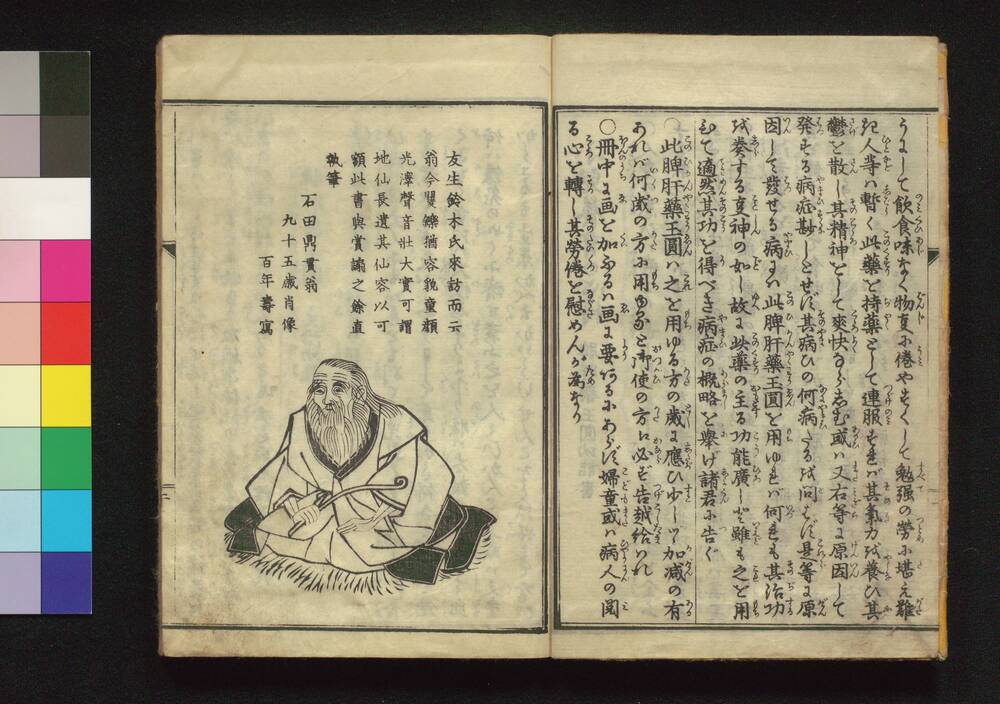 うにして飲食味なく物事に倦やすくして勉强の勞に堪え難
き人等ハ暫く此藥を持藥として連服すれバ其氣力を養ひ其
鬱を散し其精神をして爽快ならしむ或ハ又右等に原因して
発する病症尠しとせず其病ひの何病たるを問はず是等に原
因して發せる病にハ此脾肝藥王圓を用ゆれバ何れも其治功
を奏する事神の如し故に此藥の主る功能廣しと雖も之を用
ひて適然其功を得べき病症の概略を擧げ諸君に告ぐ
〇此脾肝藥王圓ハ之を用ゆる方の歲に應ひ少しツヽ加減の有
あれバ何歲の方に用ゆると御使の方に必ず告越給ハれ
〇冊中に画を加ふるハ画に要あるにあらず婦童或ハ病人の閲
る心を轉し其勞倦を慰めんが為なり
友生鈴木氏來訪而云
翁今矍鑠猶容貌童顏
光澤聲音壯大實可謂
地仙長遺其仙容以可
額此書與賞讟之餘直
執筆
石田鼎貫翁
九十五歲肖像
百年壽寫